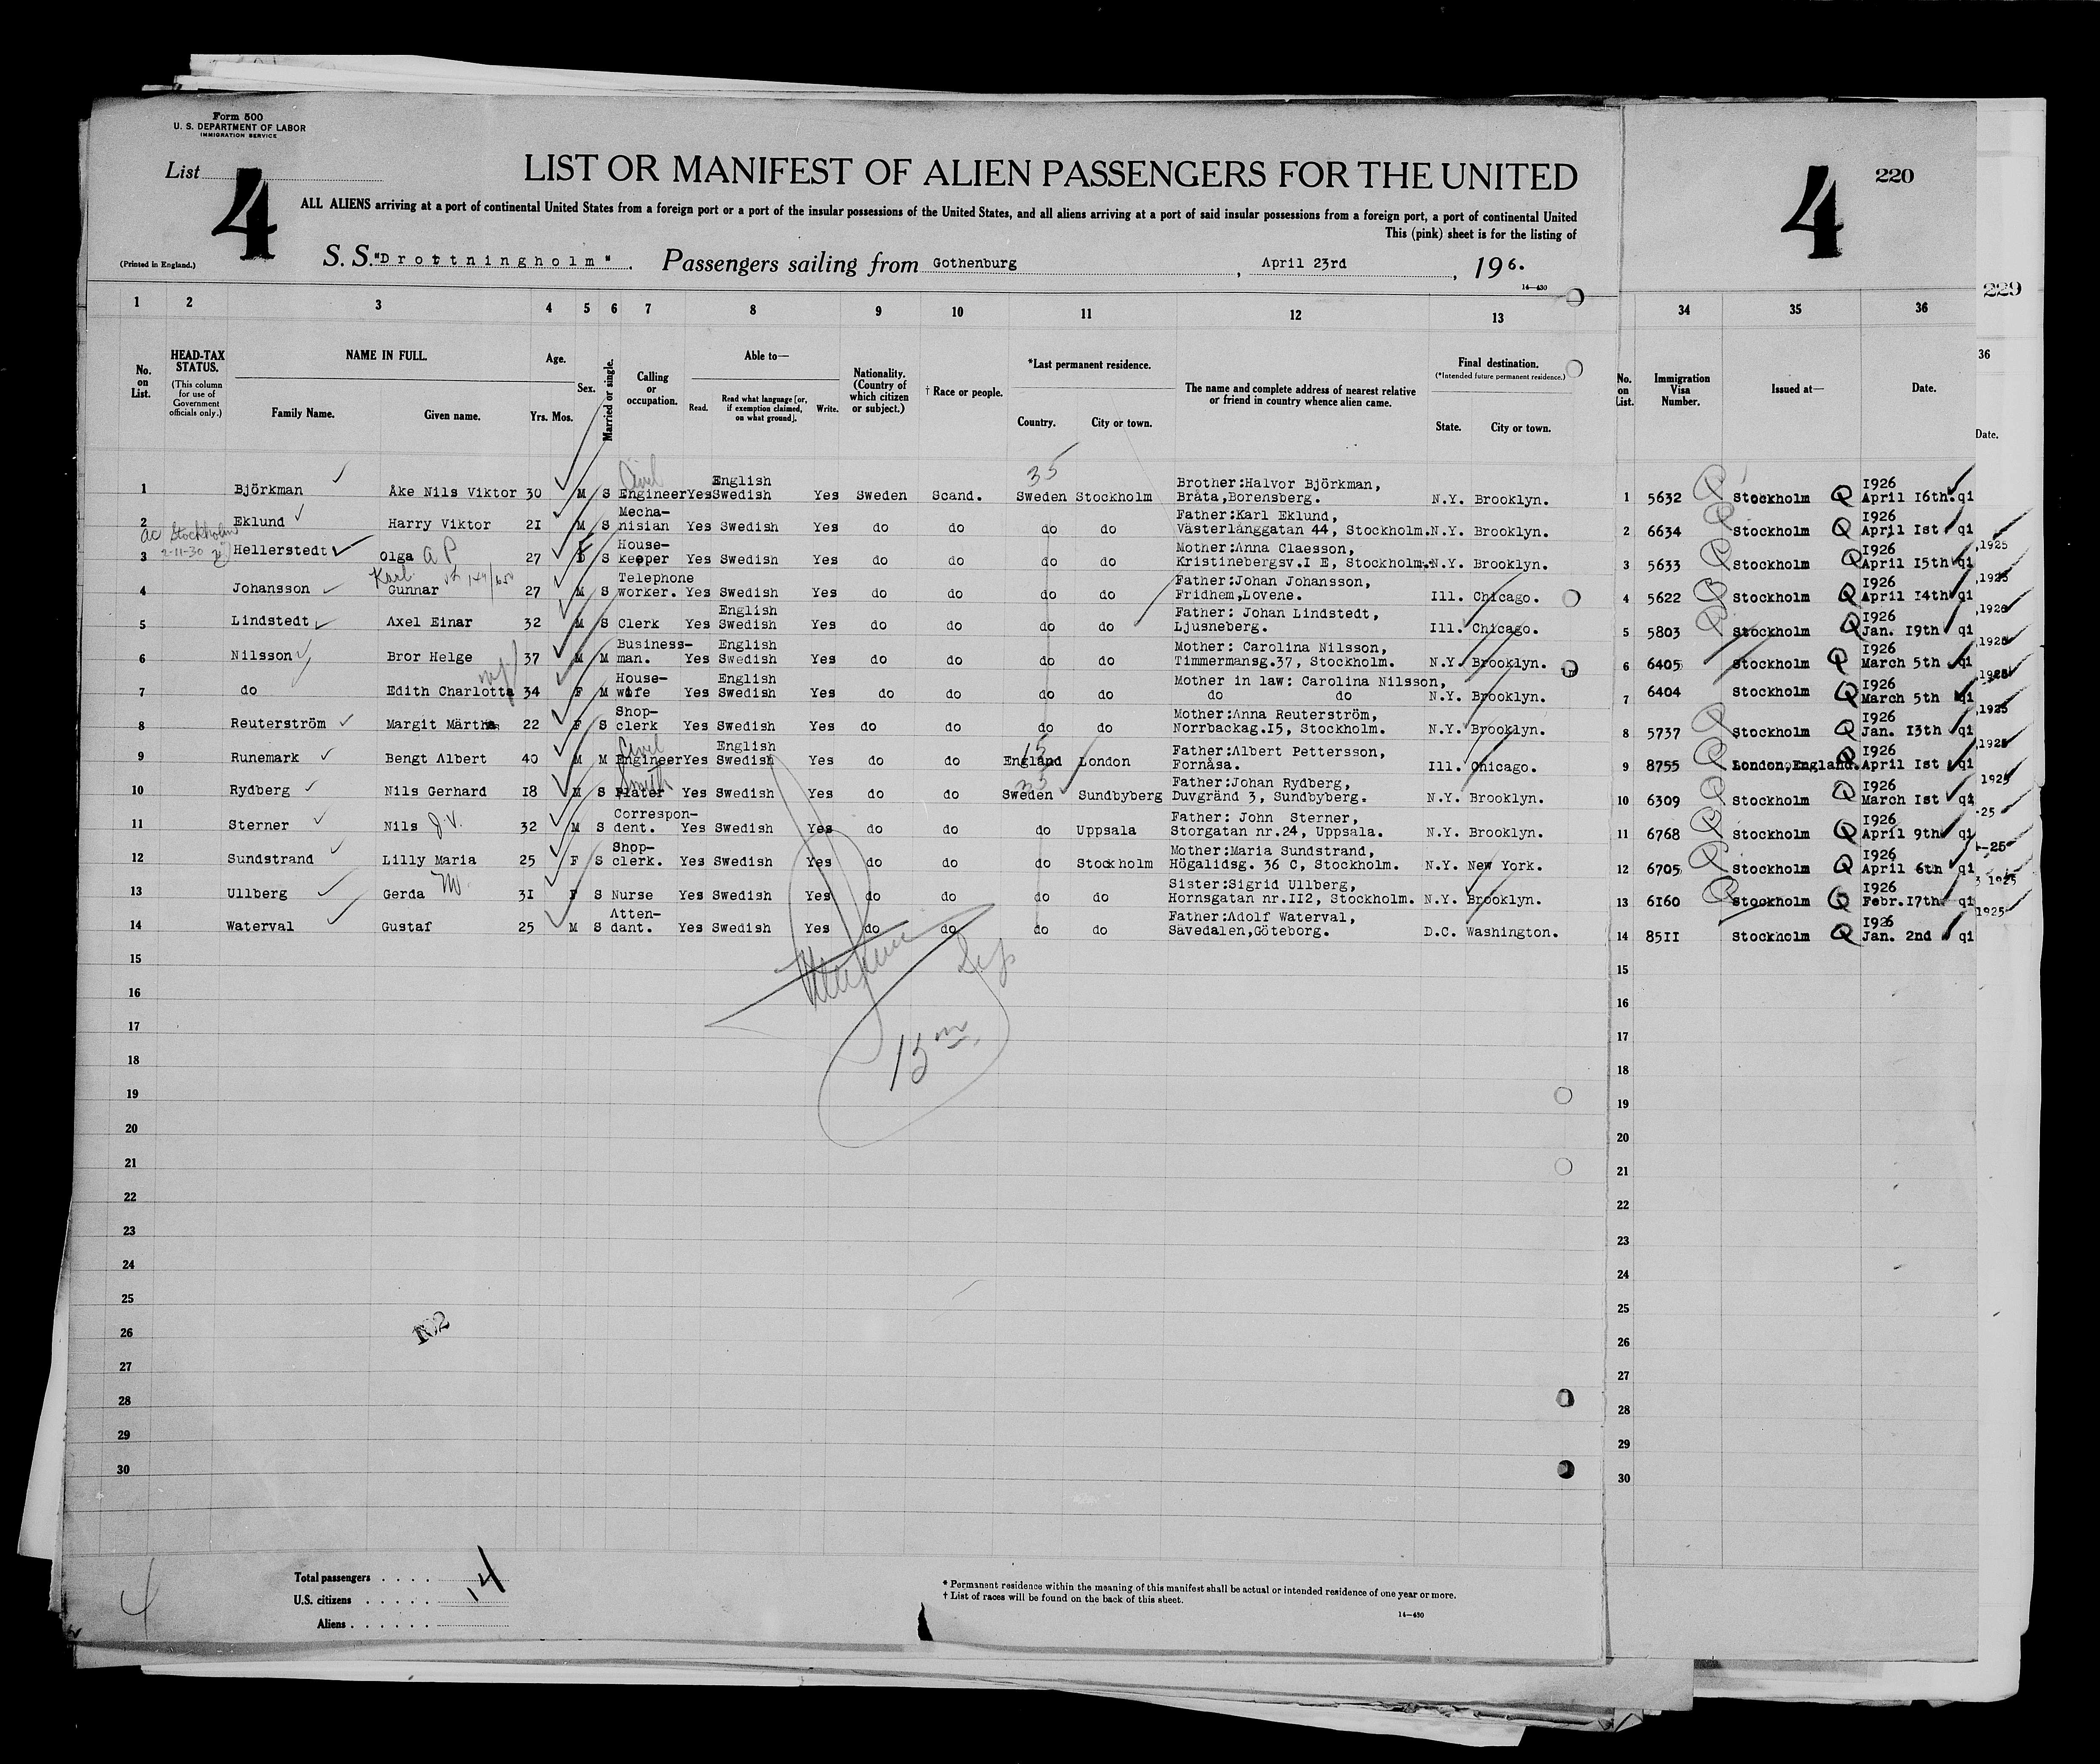 Form 500
U. S. DEPARTMENT OF LABOR
IMMIGRATION SERVICE
List 4
LIST OR MANIFEST OF ALIEN PASSENGERS FOR THE UNITED
4 220
ALL ALIENS arriving at a port of continental United States from a foreign port or a port of the insular possessions of the United States, and all aliens arriving at a port of said insular possessions from a foreign port, a port of continental United
This (pink) sheet is for the listing of
(Printed in England.)
S. S. "Drottningholm". Passengers sailing from Gothenburg, April 23rd, 196.
14—430
229
1 2 3 4 5 6 7 8 9 10 11 12 13 34 35 36
No. on List.
HEAD-TAX STATUS.
(This column for use of Government officials only.)
NAME IN FULL.
Family Name. Given name.
Age.
Yrs. Mos.
Sex.
Married or single.
Calling or occupation.
Able to—
Read. Read what language [or, if exemption claimed, on what ground]. Write.
Nationality. (Country of which citizen or subject.)
† Race or people.
*Last permanent residence.
Country. City or town.
The name and complete address of nearest relative or friend in country whence alien came.
Final destination.
(*Intended future permanent residence.)
State. City or town.
No. on List.
Immigration Visa Number.
Issued at—
Date.
36
Date.
Civil English 35 Brother:Halvor Björkman, 1926
1 Björkman Åke Nils Viktor 30 M S Engineer Yes Swedish Yes Sweden Scand. Sweden Stockholm Bråta,Borensberg. N.Y. Brooklyn. 1 5632 Stockholm Q April 16th. qi
Mecha- Father:Karl Eklund, 1926
2 Eklund Harry Viktor 21 M S nisian Yes Swedish Yes do do do do Västerlånggatan 44, Stockholm. N.Y. Brooklyn. 2 6634 Stockholm Q April 1st qi
ac Stockholm 2-11-30
House- Mother:Anna Claesson, 1926
3 Hellerstedt Olga A P 27 F S keeper Yes Swedish Yes do do do do Kristinebergsv.1 E, Stockholm. N.Y. Brooklyn. 3 5633 Stockholm Q April 15th qi
Karl Telephone Father:Johan Johansson, 1926
4 Johansson Gunnar 27 M S worker. Yes Swedish Yes do do do do Fridhem,Lovene. Ill. Chicago. 4 5622 Stockholm Q April 14th qi
English Father: Johan Lindstedt, 1926
5 Lindstedt Axel Einar 32 M S Clerk Yes Swedish Yes do do do do Ljusneberg. Ill. Chicago. 5 5803 Stockholm Q Jan. 19th qi
Business- English Mother: Carolina Nilsson, 1926
6 Nilsson Bror Helge 37 M M man. Yes Swedish Yes do do do do Timmermansg.37, Stockholm. N.Y. Brooklyn. 6 6405 Stockholm Q March 5th qi
House- English Mother in law: Carolina Nilsson, 1926
7 do Edith Charlotta 34 F M wife Yes Swedish Yes do do do do do do N.Y. Brooklyn. 7 6404 Stockholm Q March 5th qi
Shop- Mother:Anna Reuterström, 1926
8 Reuterström Margit Märtha 22 F S clerk Yes Swedish Yes do do do do Norrbackag.15, Stockholm. N.Y. Brooklyn. 8 5737 Stockholm Q Jan. 13th qi
Civil English Father:Albert Pettersson, 1926
9 Runemark Bengt Albert 40 M M Engineer Yes Swedish Yes do do England London Fornåsa. Ill. Chicago. 9 8755 London,England. April 1st qi
Smith Father:Johan Rydberg, 1926
10 Rydberg Nils Gerhard 18 M S Plater Yes Swedish Yes do do Sweden Sundbyberg Duvgränd 3, Sundbyberg. N.Y. Brooklyn. 10 6309 Stockholm Q March 1st qi
Correspon- Father: John Sterner, 1926
11 Sterner Nils J.V. 32 M S dent. Yes Swedish Yes do do do Uppsala Storgatan nr.24, Uppsala. N.Y. Brooklyn. 11 6768 Stockholm Q April 9th qi
Shop- Mother:Maria Sundstrand, 1926
12 Sundstrand Lilly Maria 25 F S clerk. Yes Swedish Yes do do do Stockholm Högalidsg. 36 C, Stockholm. N.Y. New York. 12 6705 Stockholm Q April 6th qi
Sister:Sigrid Ullberg, 1926
13 Ullberg Gerda M. 31 F S Nurse Yes Swedish Yes do do do do Hornsgatan nr.112, Stockholm. N.Y. Brooklyn. 13 6160 Stockholm Q Febr.17th qi
Atten- Father:Adolf Waterval, 1926
14 Waterval Gustaf 25 M S dant. Yes Swedish Yes do do do do Sävedalen,Göteborg. D.C. Washington. 14 8511 Stockholm Q Jan. 2nd qi
15 15
16 16
17 17
18 18
19 19
20 20
21 21
22 22
23 23
24 24
25 25
26 26
27 27
28 28
29 29
30 30
102
Total passengers . . . . 14
U.S. citizens . . . . .
Aliens . . . . . .
4
* Permanent residence within the meaning of this manifest shall be actual or intended residence of one year or more.
† List of races will be found on the back of this sheet.
14—430